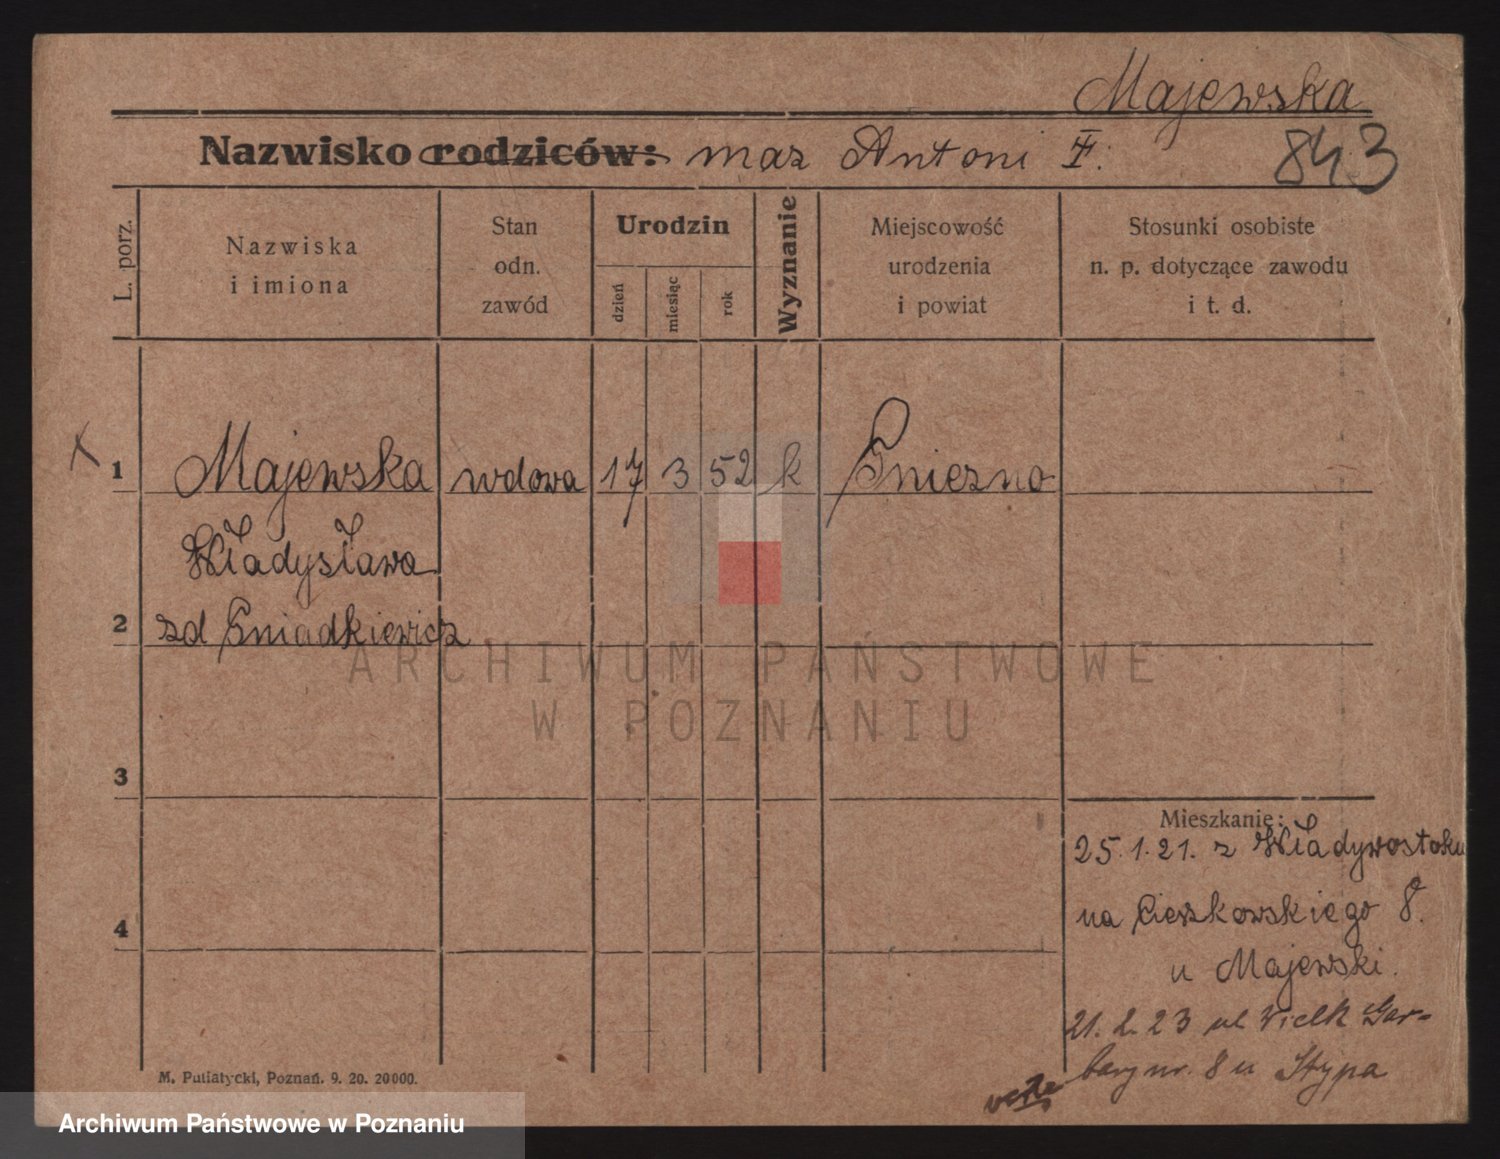 Majewska
Nazwisko rodziców: maz Antoni †.
843
L. porz.
Nazwiska
i imiona
Stan
odn.
zawód
Urodzin
dzień
miesiąc
rok
Wyznanie
Miejscowość
urodzenia
i powiat
Stosunki osobiste
n. p. dotyczące zawodu
i t. d.
1 Majewska wdowa 17 3 52 k Gniezno
Władysława
2 zd Gniadkiewicz
ARCHIWUM PAŃSTWOWE
W POZNANIU
3
Mieszkanie:
25.1.21. z Władywostoku
4 na Cieszkowskiego 8.
u Majewski.
21.2.23 ul Wielk Gar-
bary nr. 8 u Stypa
M. Putiatycki, Poznań. 9. 20. 20000.
Archiwum Państwowe w Poznaniu